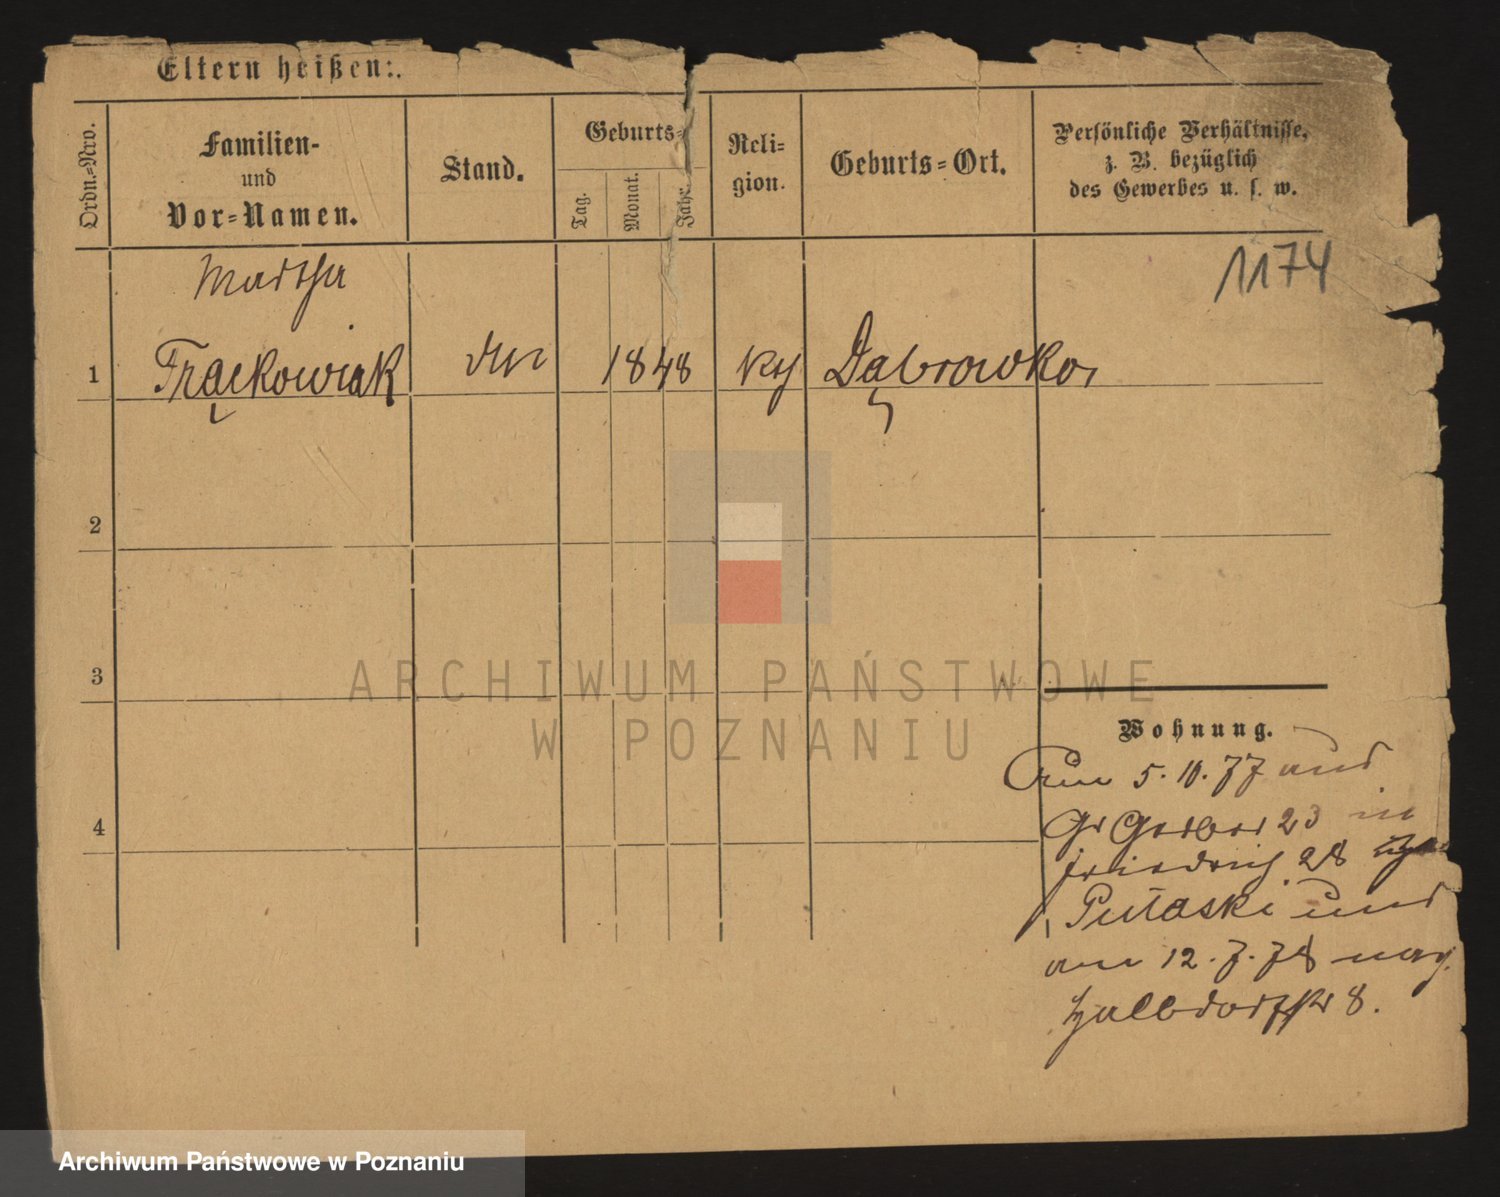 Eltern heißen:
Ordn.=Nro.
Familien-
und
Vor=Namen.
Stand.
Geburts=
Tag.
Monat.
Jahr.
Reli=
gion.
Geburts=Ort.
Persönliche Verhältnisse,
z. B. bezüglich
des Gewerbes u. s. w.
1174
Martha
1 Frąckowiak 1848 kth Dąbrowka,
2
3
4
Wohnung.
Am 5.10.77 aus
Gr Gerber 23 in
Friedrich 28
Pulaski und
am 12.7.78 nach
Halbdorfstr 8.
ARCHIWUM PAŃSTWOWE
W POZNANIU
Archiwum Państwowe w Poznaniu